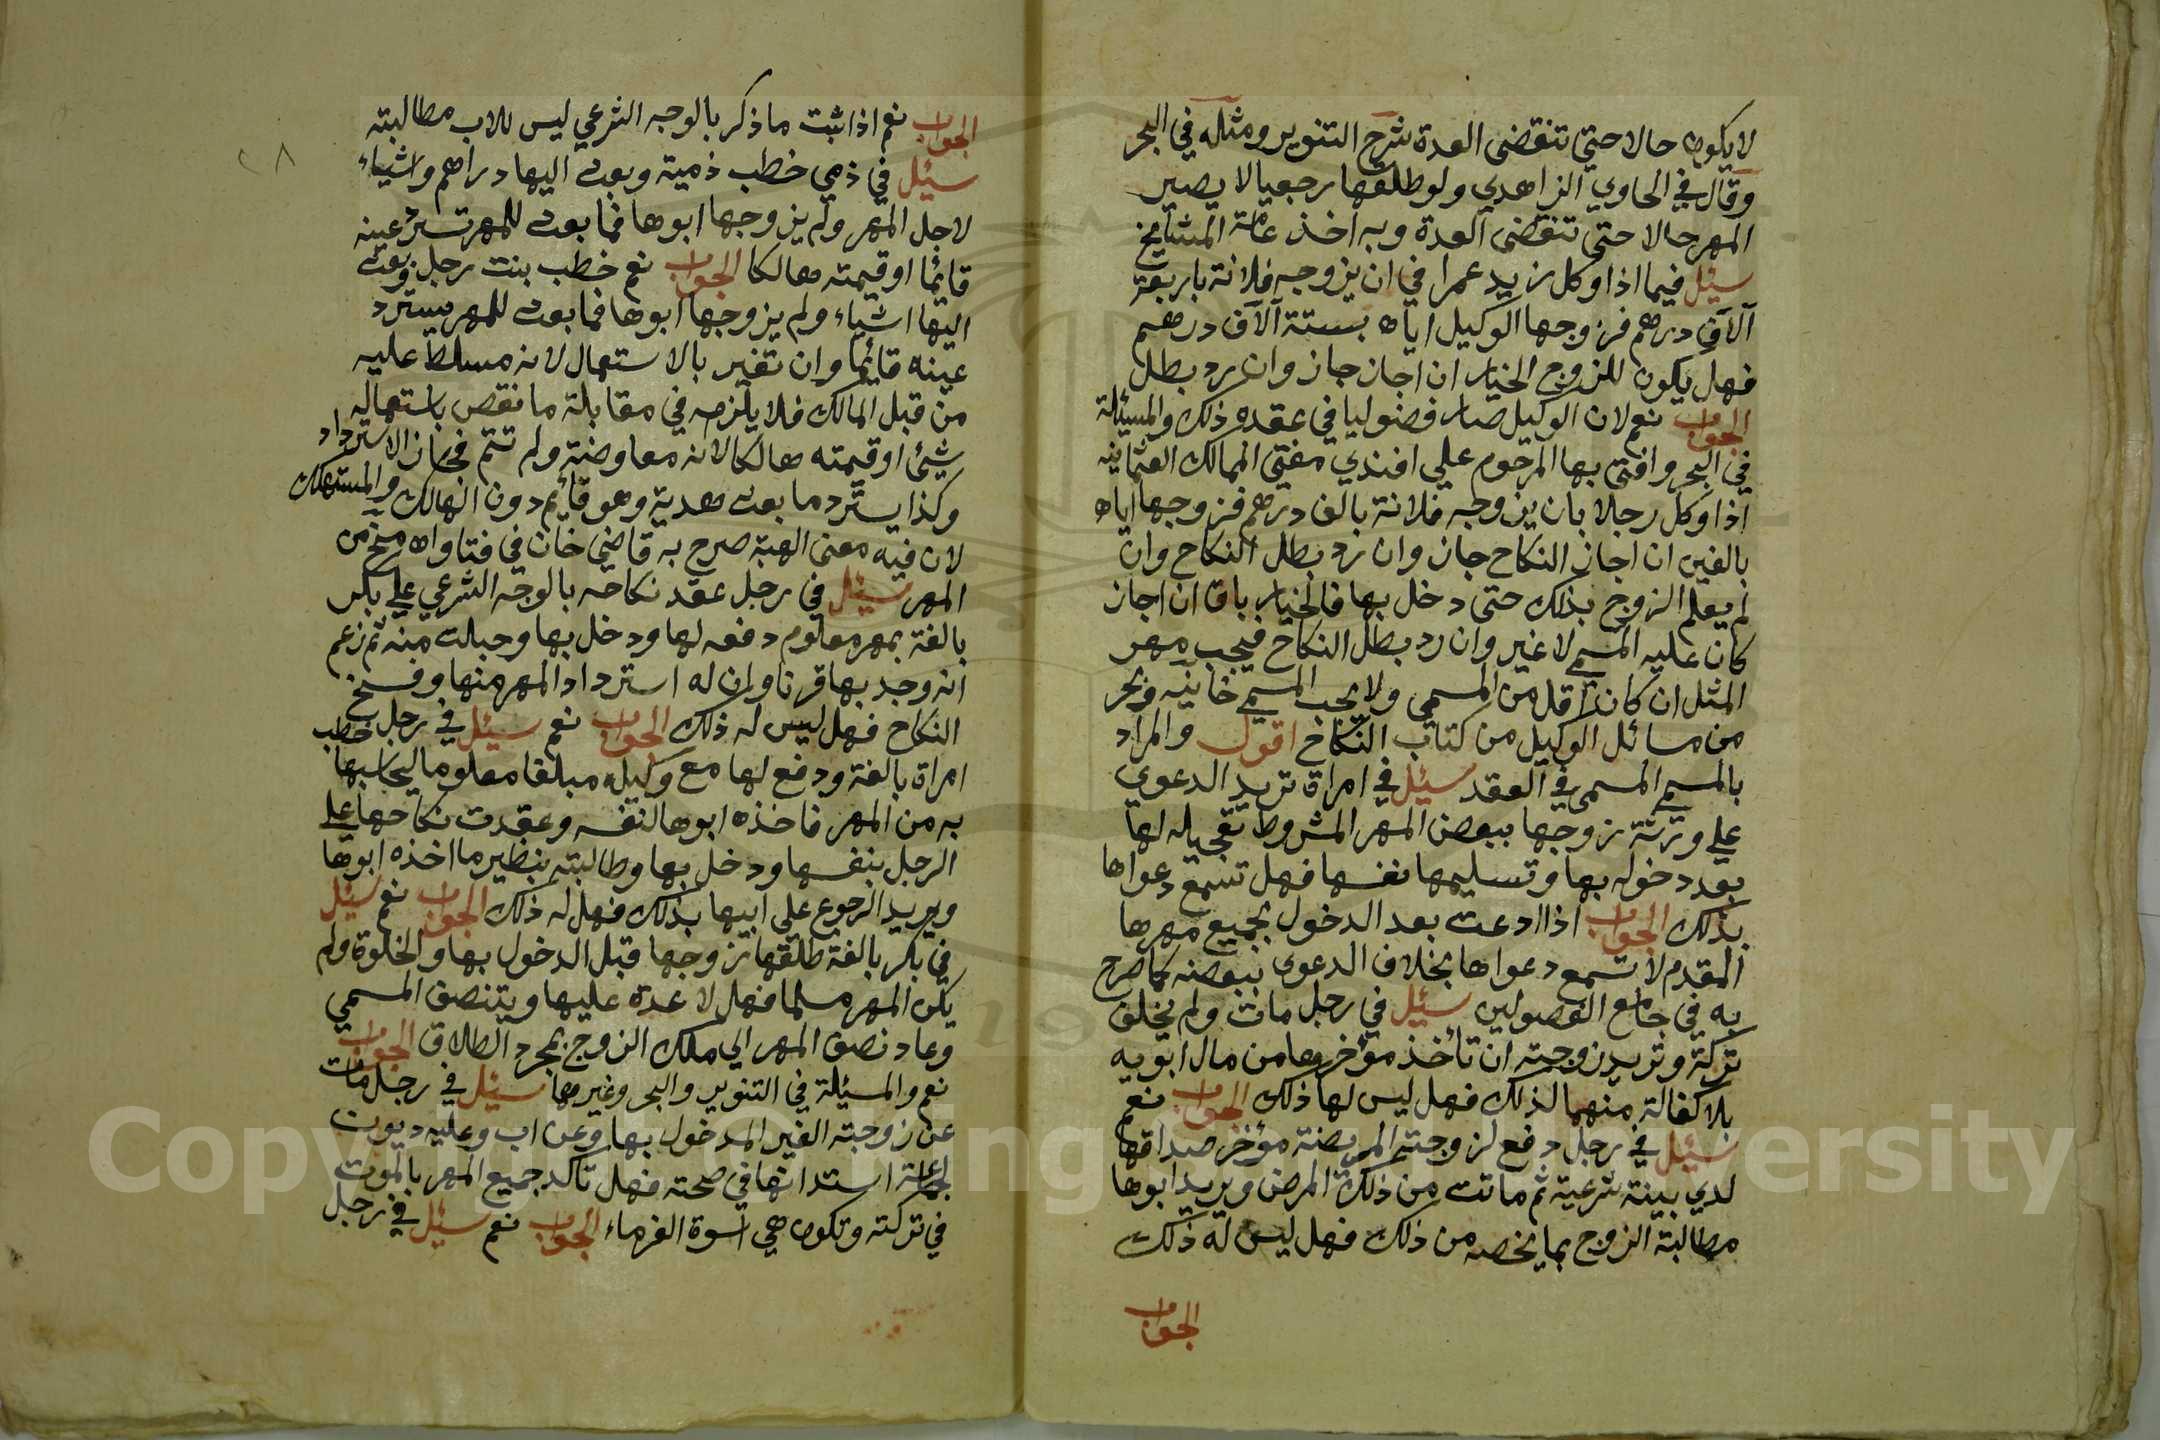 لا يكون حالا حتي تنقضى العدة شرح التنوير ومثله في البحر
وقال في الحاوي الزاهدي ولو طلقها رجعيا لا يصير
المهر حالا حتى تنقضى العدة وبه اخذ عامة المشايخ
سئل فيما اذا وكل زيد عمرا في ان يزوجه فلانة باربعة
آلاف درهم فزوجها الوكيل اياه بستة آلاف درهم
فهل يكون للزوج الخيار ان اجاز جاز وان رد بطل
الجواب نعم لان الوكيل صار فضوليا في عقده ذلك والمسئلة
في البحر وافتى بها المرحوم علي افندي مفتي الممالك العثمانيه
اذا وكل رجلا بان يزوجه فلانة بالف درهم فزوجها اياه
بالفين ان اجاز النكاح جاز وان رد بطل النكاح وان
لم يعلم الزوج بذلك حتى دخل بها فالخيار باق ان اجاز
كان عليه المسمي لا غير وان رد بطل النكاح فيجب مهر
المثل ان كان اقل من المسمى ولا يجب المسمي خانيه وبحر
من مسائل الوكيل من كتاب النكاح اقول والمراد
بالمسمي المسمى في العقد سئل في امراة تريد الدعوي
علي ورثة زوجها ببعض المهر المشروط تعجيله لها
بعد دخوله بها وتسليمها نفسها فهل تسمع دعواها
بذلك الجواب اذا ادعت بعد الدخول بجميع مهرها
المقدم لا تسمع دعواها بخلاف الدعوى ببعضه كما صرح
به في جامع الفصولين سئل في رجل مات ولم يخلف
تركة وتريد زوجته ان تأخذ مؤخرها من مال ابويه
بلا كفالة منهما لذلك فهل ليس لها ذلك الجواب نعم
سئل في رجل دفع لزوجته المريضة مؤخر صداقها
لدي بينة شرعية ثم ماتت من ذلك المرض ويريد ابوها
مطالبة الزوج بما يخصه من ذلك فهل ليس له ذلك
الجواب
٢٨
الجواب نعم اذا ثبت ما ذكر بالوجه الشرعي ليس للاب مطالبته
سئل في ذمي خطب ذمية وبعث اليها دراهم واشياء
لاجل المهر ولم يزوجها ابوها فما بعث للمهر تسترد عينه
قائما او قيمته هالكا الجواب نعم خطب بنت رجل وبعث
اليها اشياء ولم يزوجها ابوها فما بعث للمهر يسترد
عينه قائما وان تغير بالاستعمال لانه مسلط عليه
من قبل المالك فلا يلزمه في مقابلة ما نقص باستعماله
شيئ او قيمته هالكا لانه معاوضة ولم تتم فجاز الاسترداد
وكذا يسترد ما بعث هدية وهو قائم دون الهالك والمستهلك
لان فيه معنى الهبة صرح به قاضي خان في فتاواه منح من
المهر سئل في رجل عقد نكاحه بالوجه الشرعي علي بكر
بالغة بمهر معلوم دفعه لها ودخل بها وحبلت منه ثم زعم
انه وجد بها قرنا وان له استرداد المهر منها وفسخ
النكاح فهل ليس له ذلك الجواب نعم سئل في رجل خطب
امراة بالغة ودفع لها مع وكيله مبلغا معلوما ليحاسبها
به من المهر فاخذه ابوها لنفسه وعقدت نكاحها علي
الرجل بنفسها ودخل بها وطالبته بنظير ما اخذه ابوها
ويريد الرجوع على ابيها بذلك فهل له ذلك الجواب نعم سئل
في بكر بالغة طلقها زوجها قبل الدخول بها والخلوة ولم
يكن المهر مسلما فهل لا عدة عليها ويتنصف المسمي
وعاد نصف المهر الي ملك الزوج بمجرد الطلاق الجواب
نعم والمسئلة في التنوير والبحر وغيرهما سئل في رجل مات
عن زوجته الغير المدخول بها وعن اب وعليه ديون
لجماعة استدانها في صحته فهل تأكد جميع المهر بالموت
في تركته وتكون هي اسوة الغرماء الجواب نعم سئل في رجل